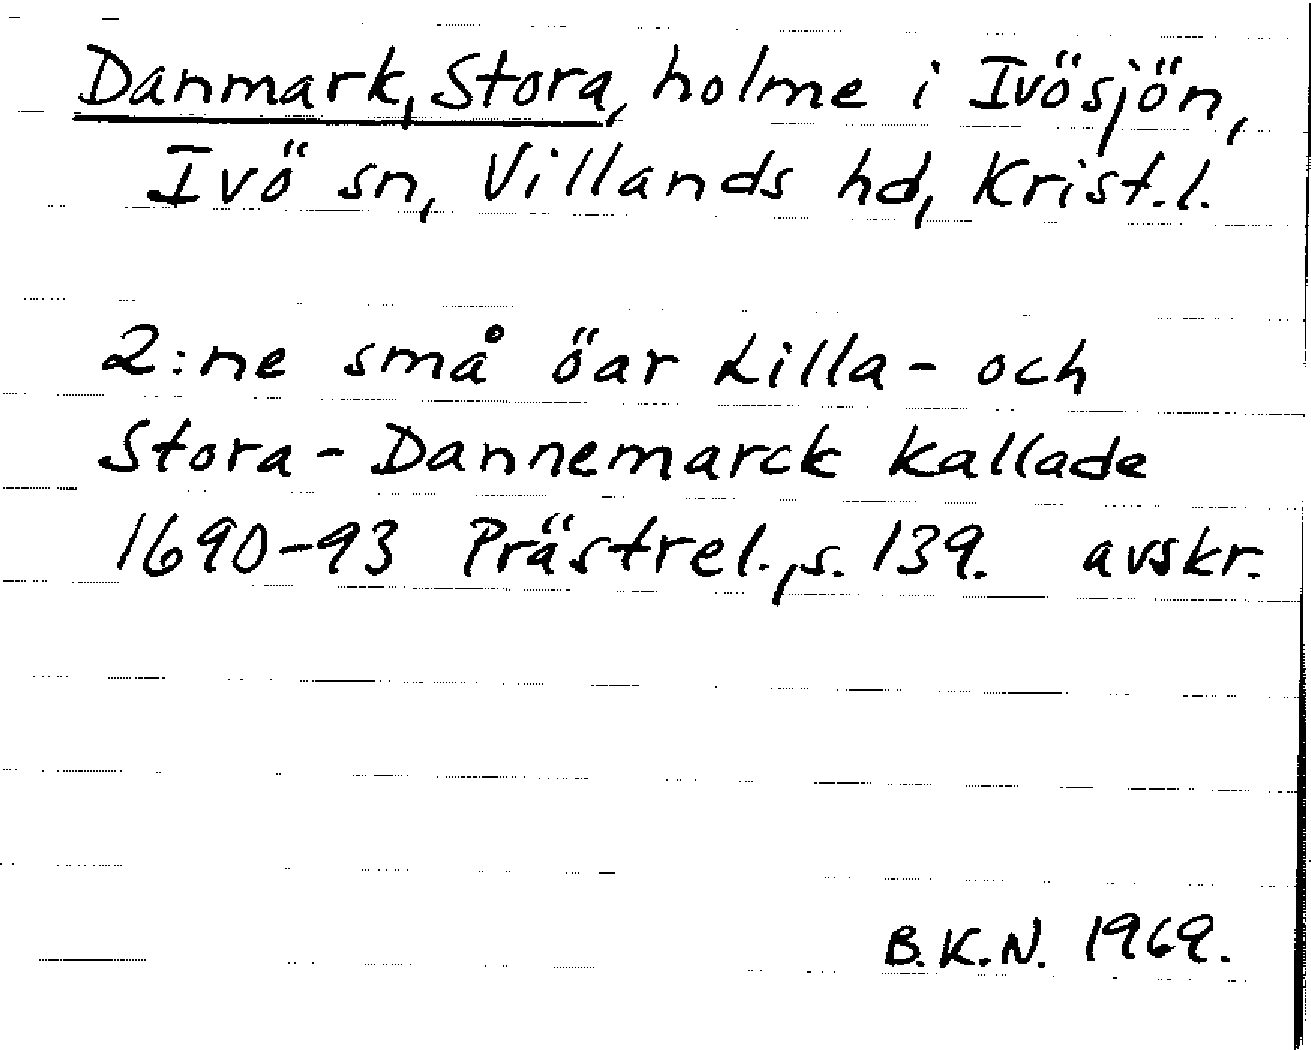 Danmark, Stora, holme i Ivösjön,
Ivö sn, Villands hd, Krist.l.
2:ne små öar Lilla- och
Stora-Dannemarck kallade
1690-93 Prästrel., s. 139. avskr.
B.K.N. 1969.